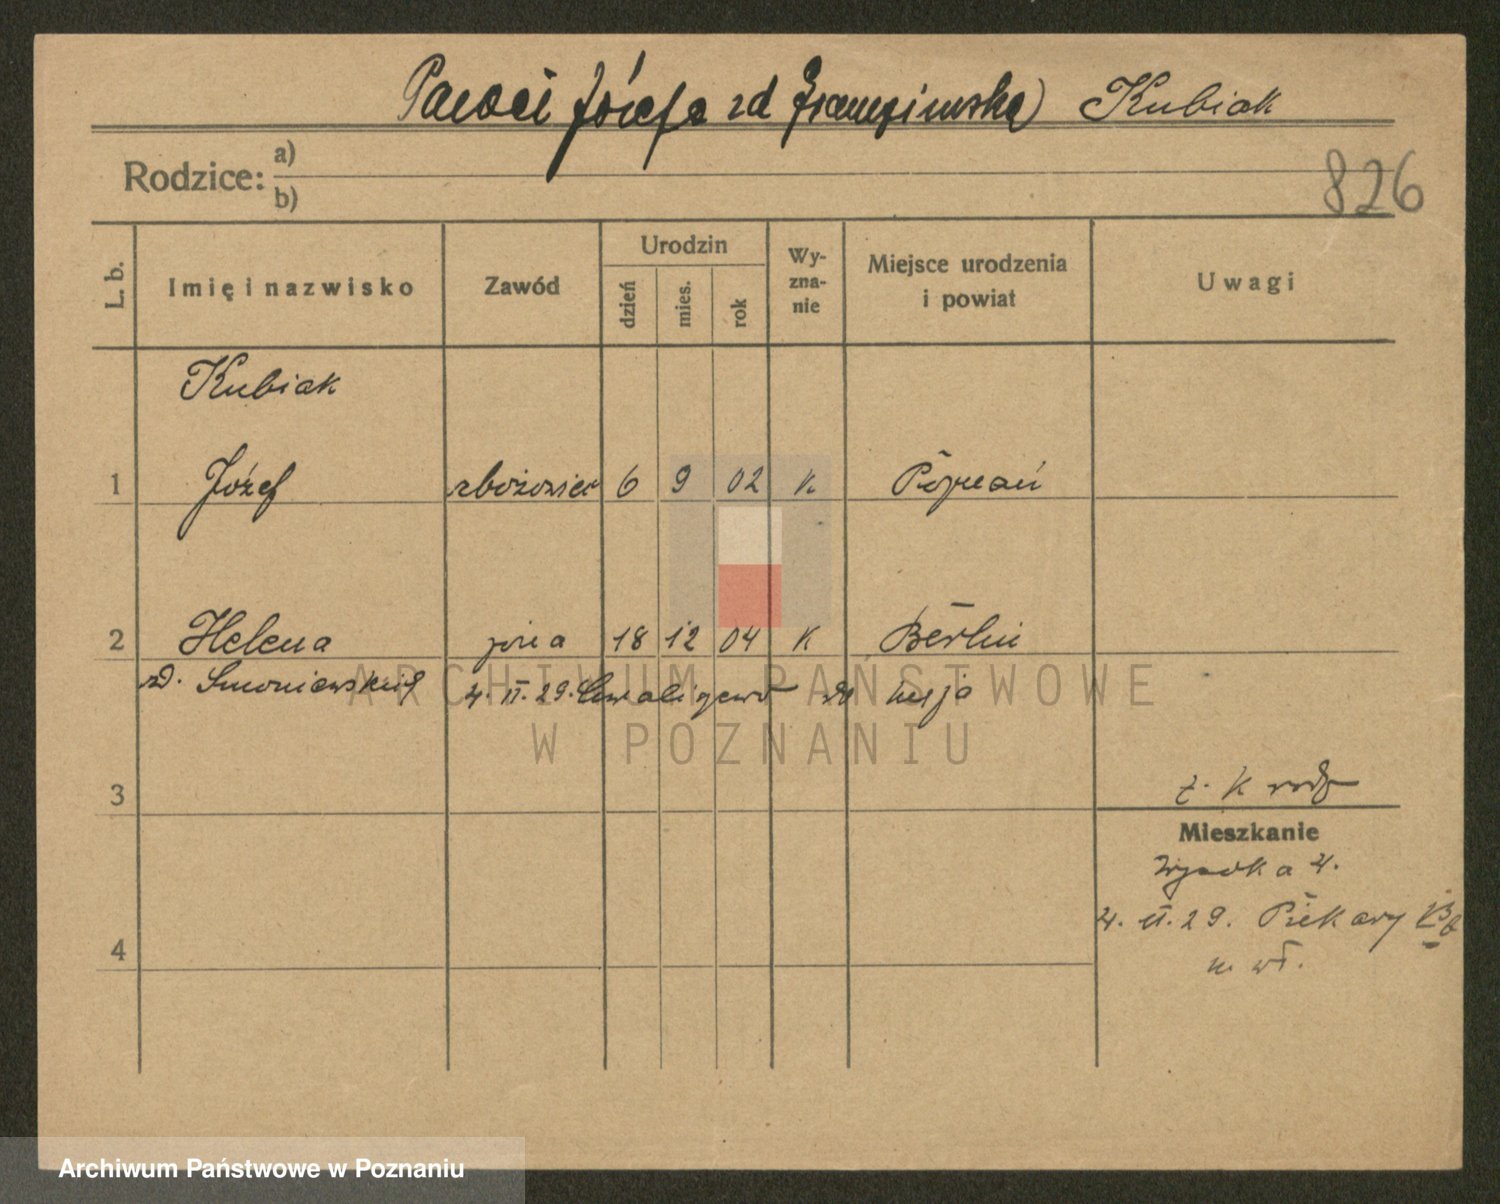 Józefa zd Kubiak
Rodzice: a)
b)
826
L. b.
Imię i nazwisko
Zawód
Urodzin
dzień
mies.
rok
Wy-
zna-
nie
Miejsce urodzenia
i powiat
Uwagi
Kubiak
1 Józef zbożowiec 6 9 02 K Poznań
2 Helena żona 18 12 04 K Berlin
zd.
4. II. 29.
3
Mieszkanie
4.
4. II. 29. Piekary
4
ARCHIWUM PAŃSTWOWE
W POZNANIU
Archiwum Państwowe w Poznaniu